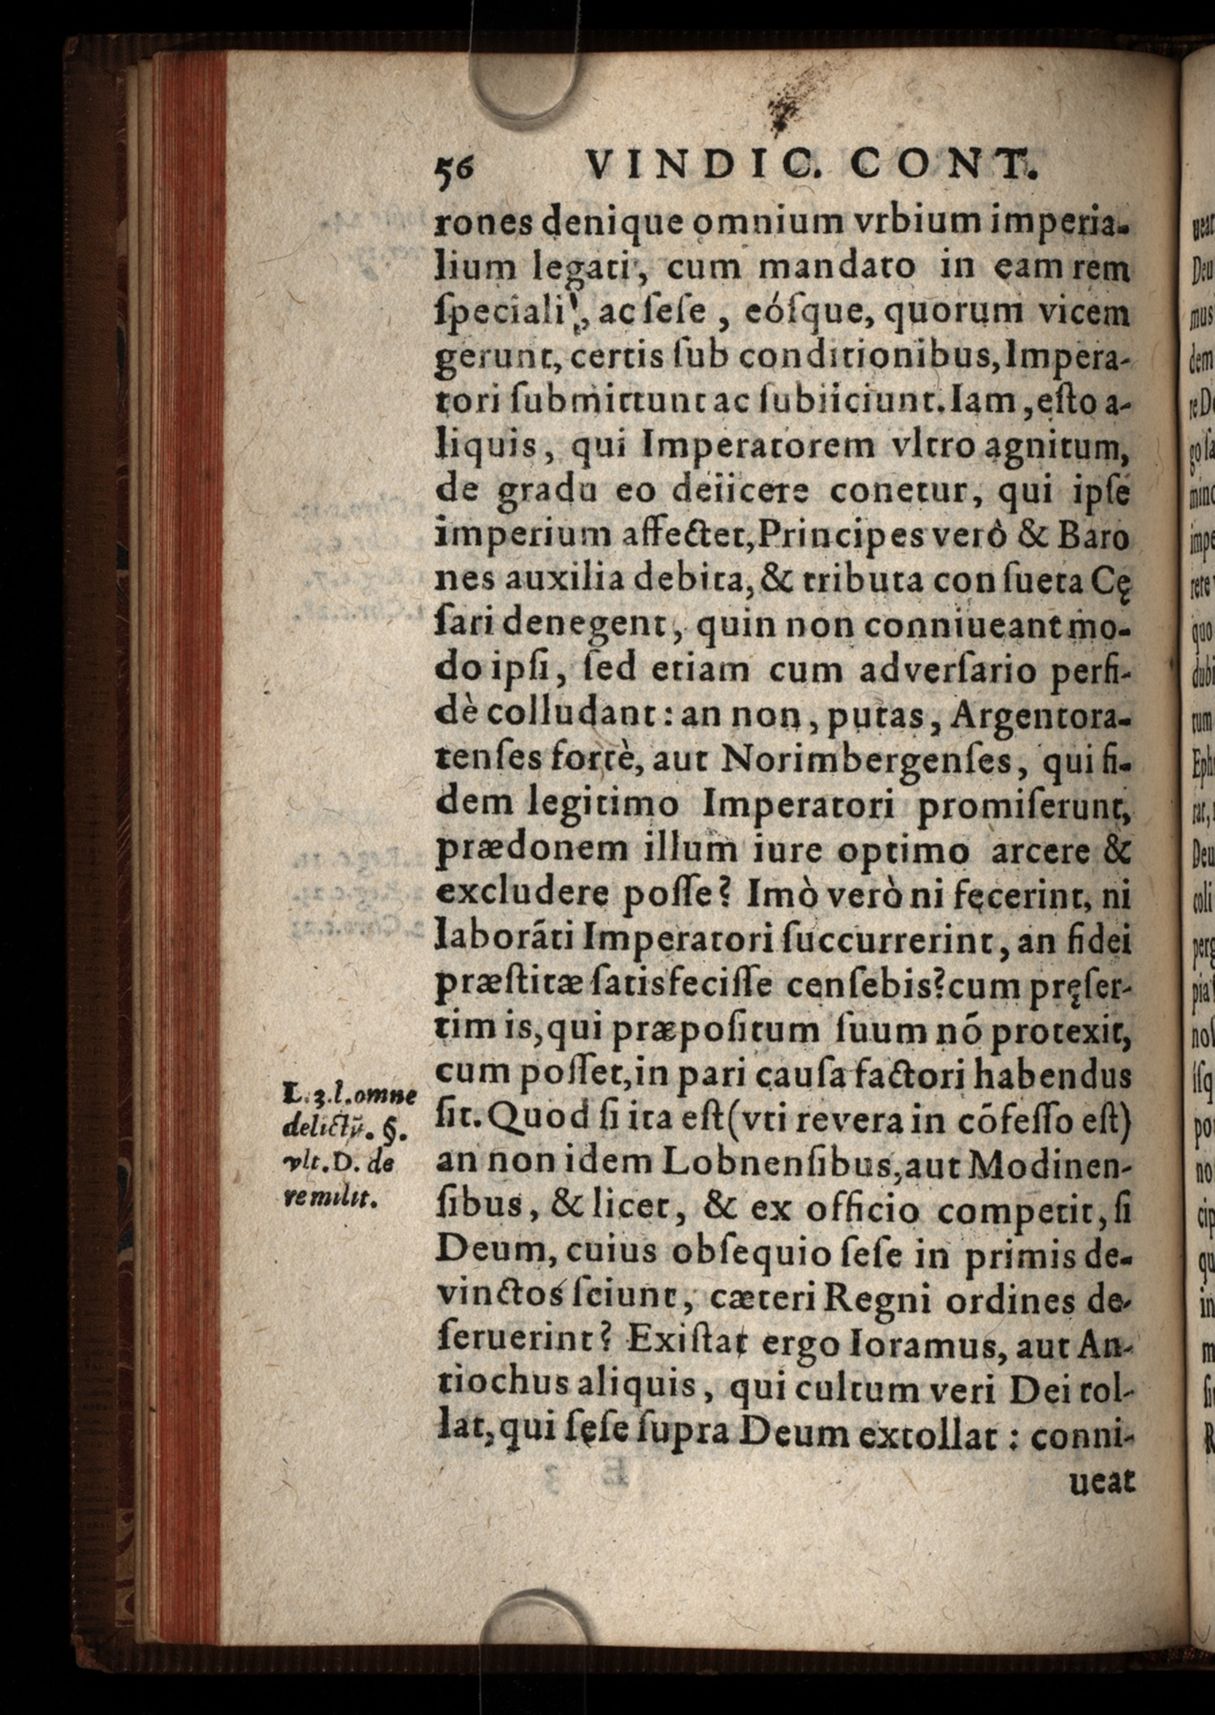 56 VINDIC. CONT.
rones denique omnium vrbium imperia-
lium legati, cum mandato in eam rem
ſpeciali, ac ſeſe, eóſque, quorum vicem
gerunt, certis ſub conditionibus, Impera-
tori ſubmittunt ac ſubiiciunt. Iam, eſto a-
liquis, qui Imperatorem vltro agnitum,
de gradu eo deiicere conetur, qui ipſe
imperium affectet, Principes verò & Baro
nes auxilia debita, & tributa conſueta Cę
ſari denegent, quin non conniueant mo-
do ipſi, ſed etiam cum adverſario perfi-
dè colludant: an non, putas, Argentora-
tenſes fortè, aut Norimbergenſes, qui fi-
dem legitimo Imperatori promiſerunt,
prædonem illum iure optimo arcere &
excludere poſſe? Imò verò ni fecerint, ni
laborāti Imperatori ſuccurrerint, an fidei
præſtitæ ſatisfeciſſe cenſebis? cum pręſer-
tim is, qui præpoſitum ſuum nō protexit,
cum poſſet, in pari cauſa factori habendus
ſit. Quod ſi ita eſt (vti revera in cōfeſſo eſt)
an non idem Lobnenſibus, aut Modinen-
ſibus, & licet, & ex officio competit, ſi
Deum, cuius obſequio ſeſe in primis de-
vinctos ſciunt, cæteri Regni ordines de-
ſeruerint? Exiſtat ergo Ioramus, aut An-
tiochus aliquis, qui cultum veri Dei tol-
lat, qui ſeſe ſupra Deum extollat: conni-
ueat
L. 3. l. omne
delictū. §.
vlt. D. de
re milit.